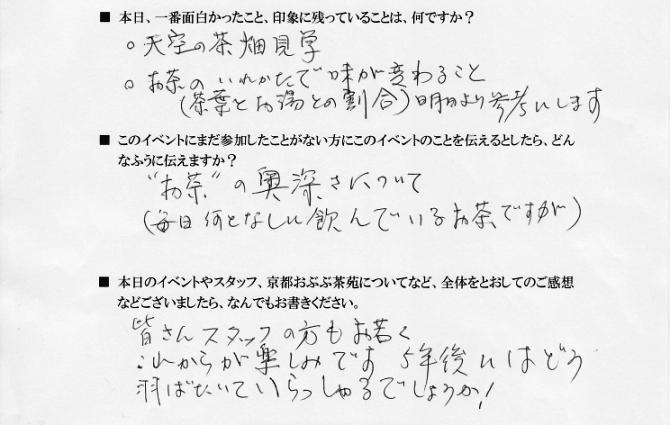 ■ 本日、一番面白かったこと、印象に残っていることは、何ですか？
○ 天空の茶畑見学
○ お茶のいれかたで味が変わること
（茶葉とお湯との割合）明日より参考にします
■ このイベントにまだ参加したことがない方にこのイベントのことを伝えるとしたら、どん
なふうに伝えますか？
“お茶”の奥深さについて
（毎日何となしに飲んでいるお茶ですが）
■ 本日のイベントやスタッフ、京都おぶぶ茶苑についてなど、全体をとおしてのご感想
などございましたら、なんでもお書きください。
皆さんスタッフの方もお若く
これからが楽しみです 5年後にはどう
羽ばたいていらっしゃるでしょうか！